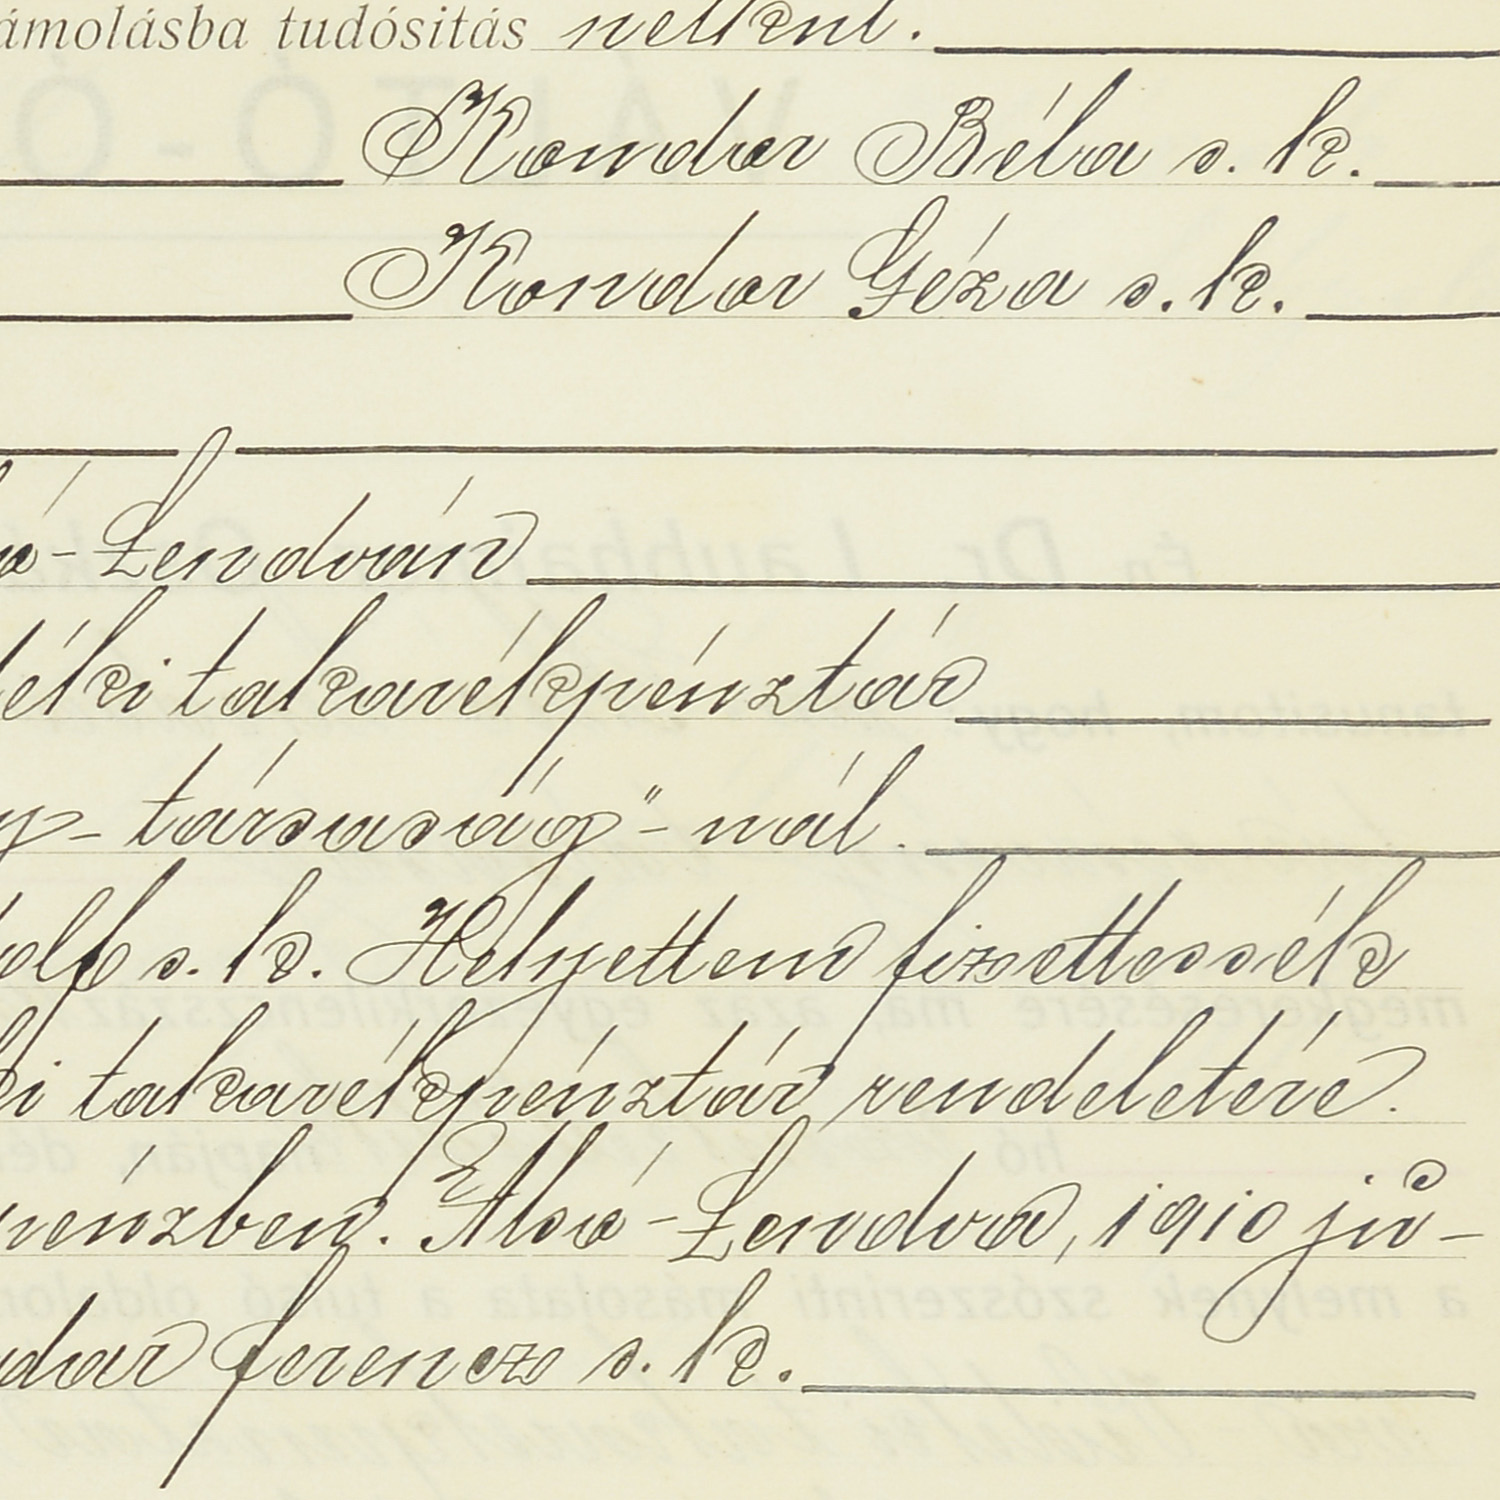 ámolásba tudósitás nélkül.
Kondor Béla s. k.
Kondor Géza s. k.
só-Lendván
déki takarékpénztár
y- társaság"-nál.
dolf s. k. Helyettem fizettessék
ki takarékpénztár rendeletére.
pénzben. Alsó-Lendva, 1910 jú-
dor ferencz s. k.